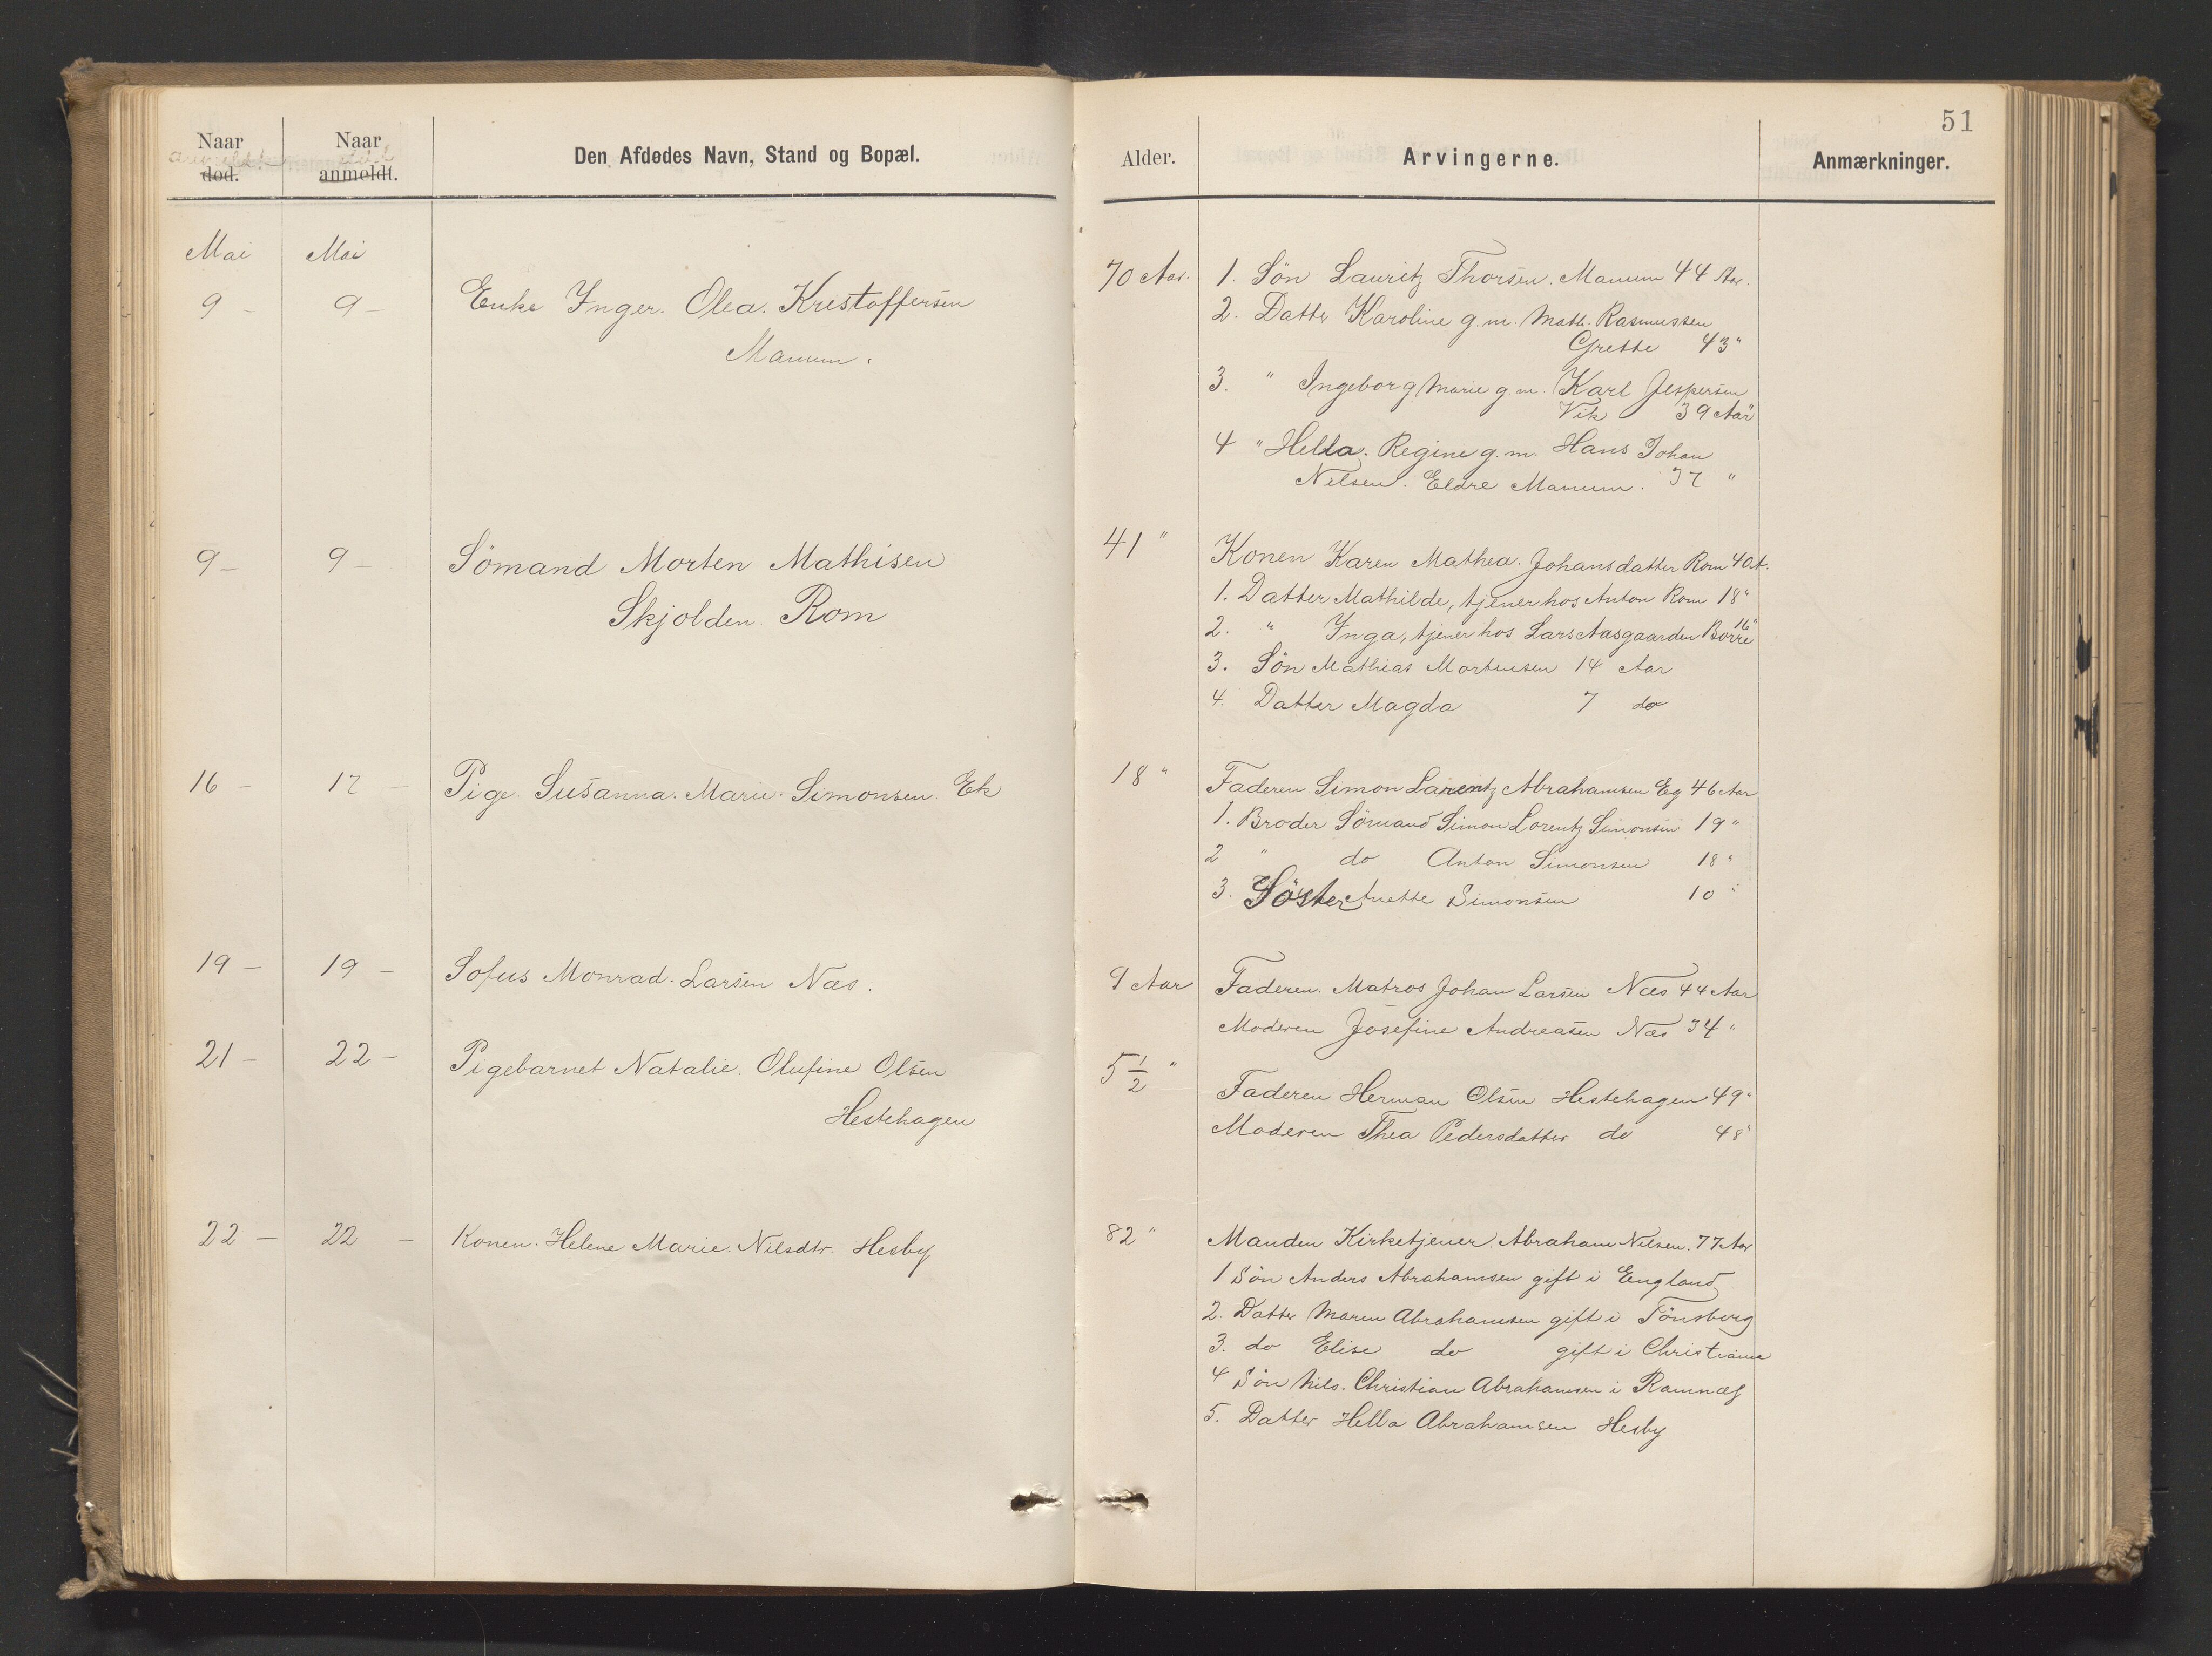 51
Naar død. Naar anmeldt. Den Afdødes Navn, Stand og Bopæl. Alder. Arvingerne. Anmærkninger.
anmeldt død
Mai Mai
9 - 9 - Enke Inger. Olea. Kristoffersen
Manum.
70 Aar. 1. Søn Lauritz Thorsen. Manum 44 Aar.
2. Datter Karoline g. m. Math. Rasmussen
Grette 43 "
3. " Ingeborg Marie g m. Karl Jespersen
Vik 39 Aar
4 " Hella. Regine g. m. Hans Johan
Nilsen. Eldre Manum. 37 "
9 - 9 - Sömand Morten Mathisen
Skjolden. Rom
41 " Konen Karen Mathea. Johansdatter Rom 40 A.
1. Datter Mathilde, tjener hos Anton Rom 18 "
2. " Inga, tjener hos Lars Aasgaarden Borre 16 "
3. Sön Mathias Mortensen 14 Aar
4. Datter Magda 7 do
16 - 17 - Pige. Susanna. Marie. Simonsen. Ek
18 " Faderen Simon Larentz Abrahamsen Eg 46 Aar
1. Broder Sömand Simon Lorentz Simonsen 19 "
2 " do Anton Simonsen 18 "
3. Söster Anette Simonsen 10 "
19 - 19 - Sofus Monrad. Larsen Næs.
9 Aar Faderen. Matros Johan Larsen Næs 44 Aar
Moderen Josefine Andreasen Næs 34 "
21 - 22 - Pigebarnet Natalie. Olufine Olsen
Hestehagen
5 1/2 " Faderen Herman Olsen Hestehagen 49 "
Moderen Thea Pedersdatter do 48 "
22 - 22 - Konen. Helene Marie. Nilsdtr. Hesby
82 " Manden Kirketjener. Abraham Nilsen. 77 Aar
1 Sön Anders Abrahamsen gift i England
2. Datter Maren Abrahamsen gift i Tönsberg
3. do Elise do gift i Christiania
4 Sön Nils. Christian Abrahamsen i Ramnæs
5. Datter Hella Abrahamsen Hesby